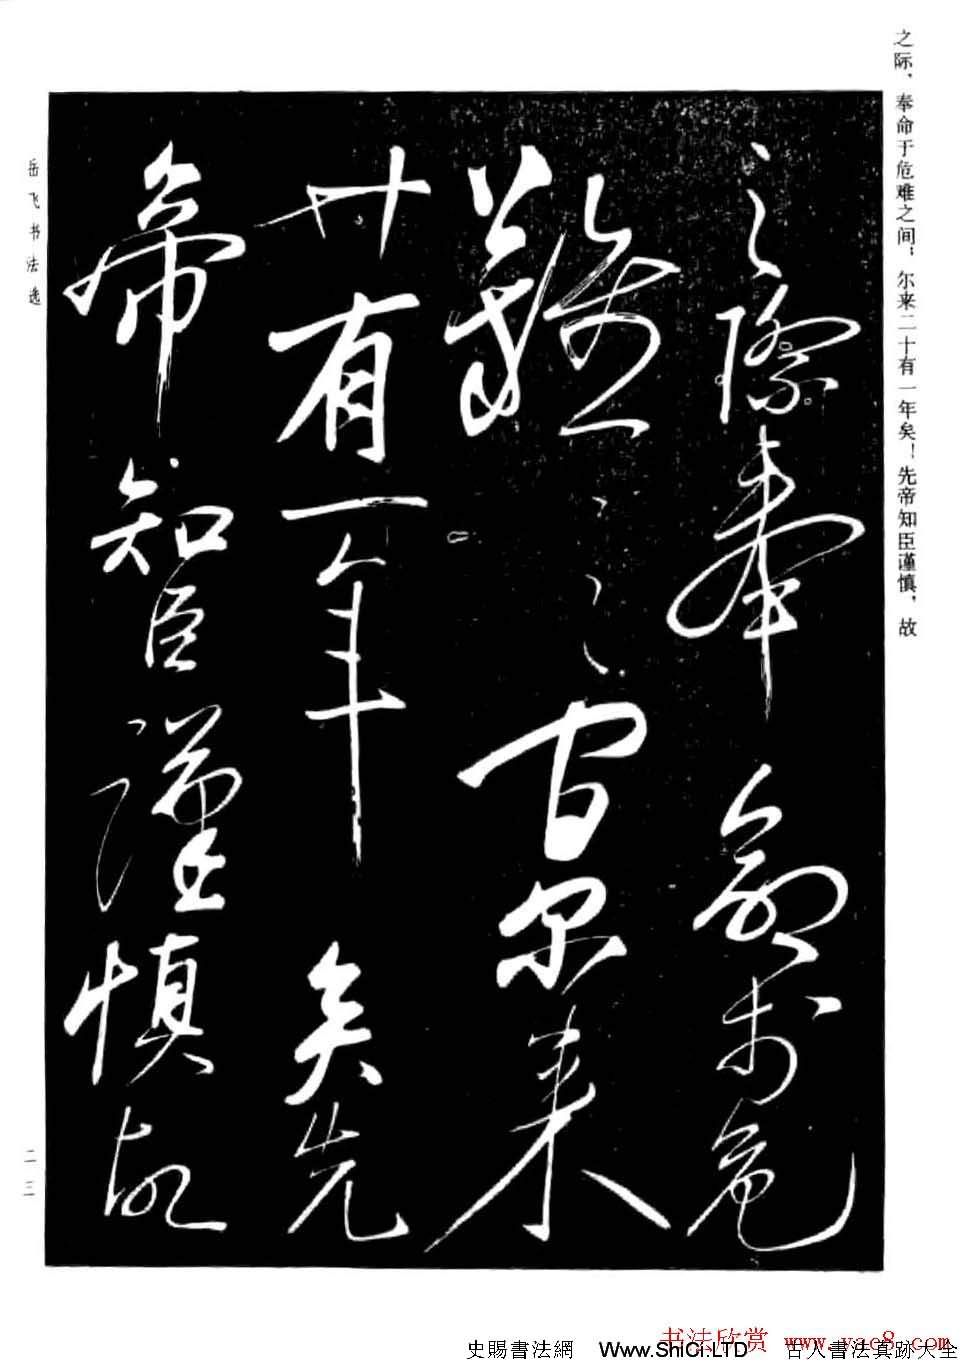 之际，奉命于危难之间，尔来二十有一年矣！先帝知臣谨慎，故
之際奉命於危
難之間爾来
廿有一年矣先
帝知臣謹慎故
岳飞书法选
二三
书法欣赏 www.yac8.com
史賜書法網 Www.ShiCi.LTD 古人書法真跡大全